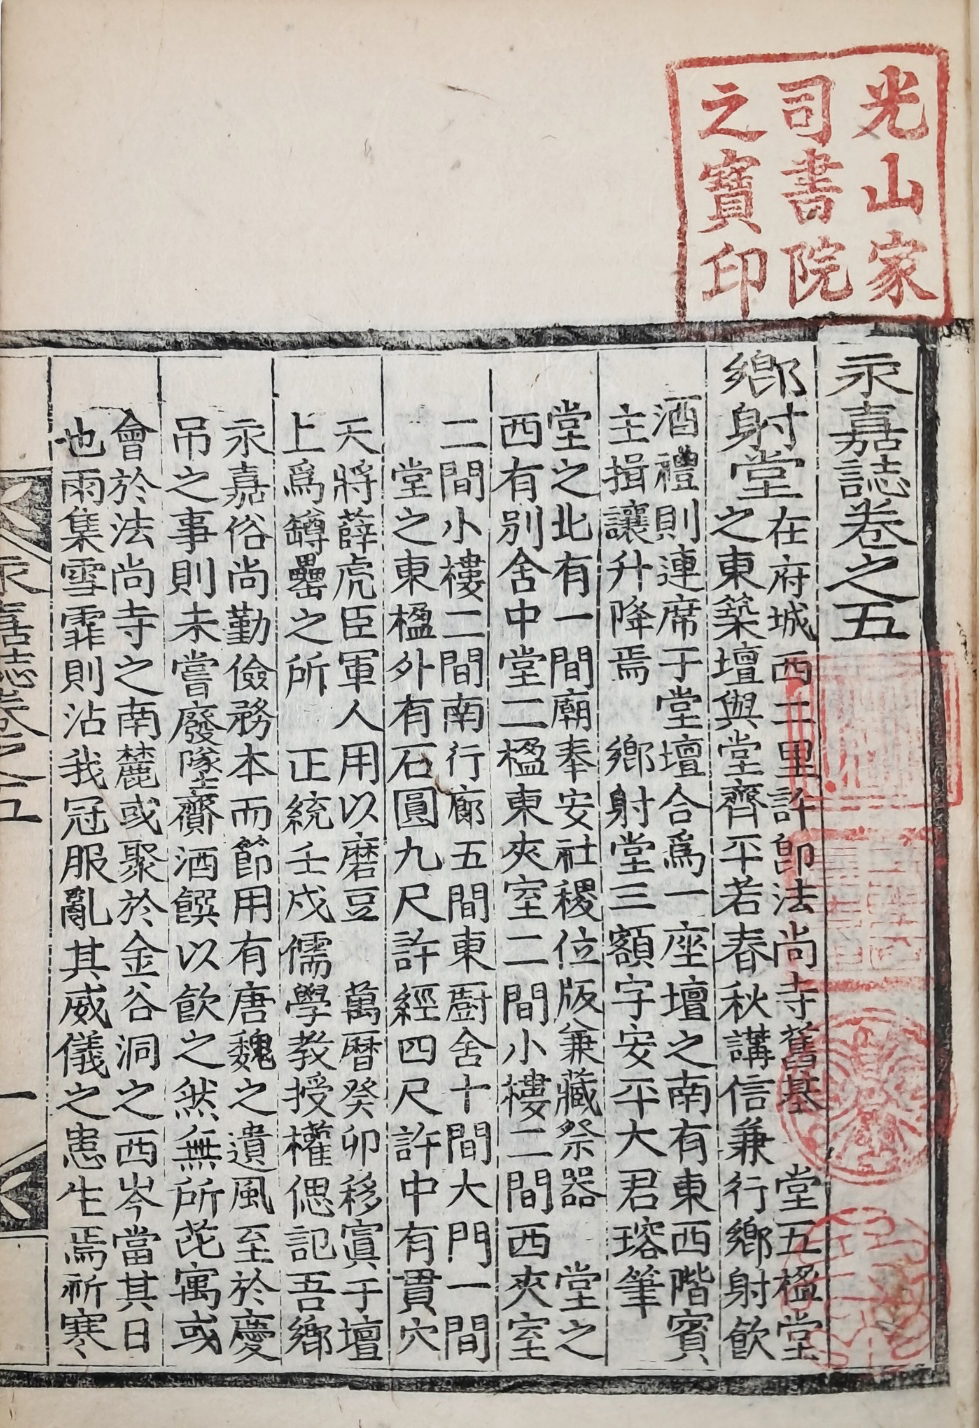 光山家
司書院
之寶印
永嘉誌卷之五
鄉射堂
在府城西二里許卽法尚寺舊基 堂五楹堂
之東築壇與堂齊平若春秋講信兼行鄉射飮
酒禮則連席于堂壇合爲一座壇之南有東西階賓
主揖讓升降焉 鄉射堂三額字安平大君瑢筆
堂之北有一間廟奉安社稷位版兼藏祭器 堂之
西有別舍中堂二楹東夾室二間小樓二間西夾室
二間小樓二間南行廊五間東厨舍十間大門一間
堂之東楹外有石圓九尺許經四尺許中有貫穴
天將薛虎臣軍人用以磨豆 萬曆癸卯移窴于壇
上爲罇罍之所 正統壬戌儒學敎授權偲記吾鄉
永嘉俗尚勤儉務本而節用有唐魏之遺風至於慶
吊之事則未嘗廢墜齎酒饌以飮之然無所芘寓或
會於法尚寺之南麓或聚於金谷洞之西岑當其日
也雨集雪霏則沾我冠服亂其威儀之患生焉祈寒
永嘉誌卷之五 一